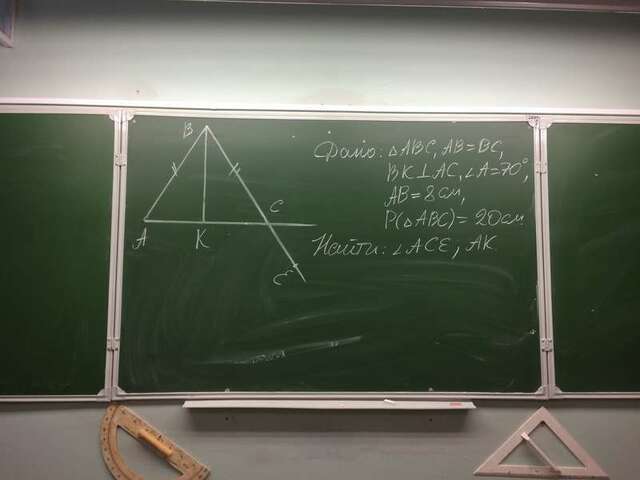 B
Дано: △ABC, AB=BC,
BK⊥AC, ∠A=70°,
AB=8см,
P(△ABC)=20см
Найти: ∠ACE, AK
A
K
C
E